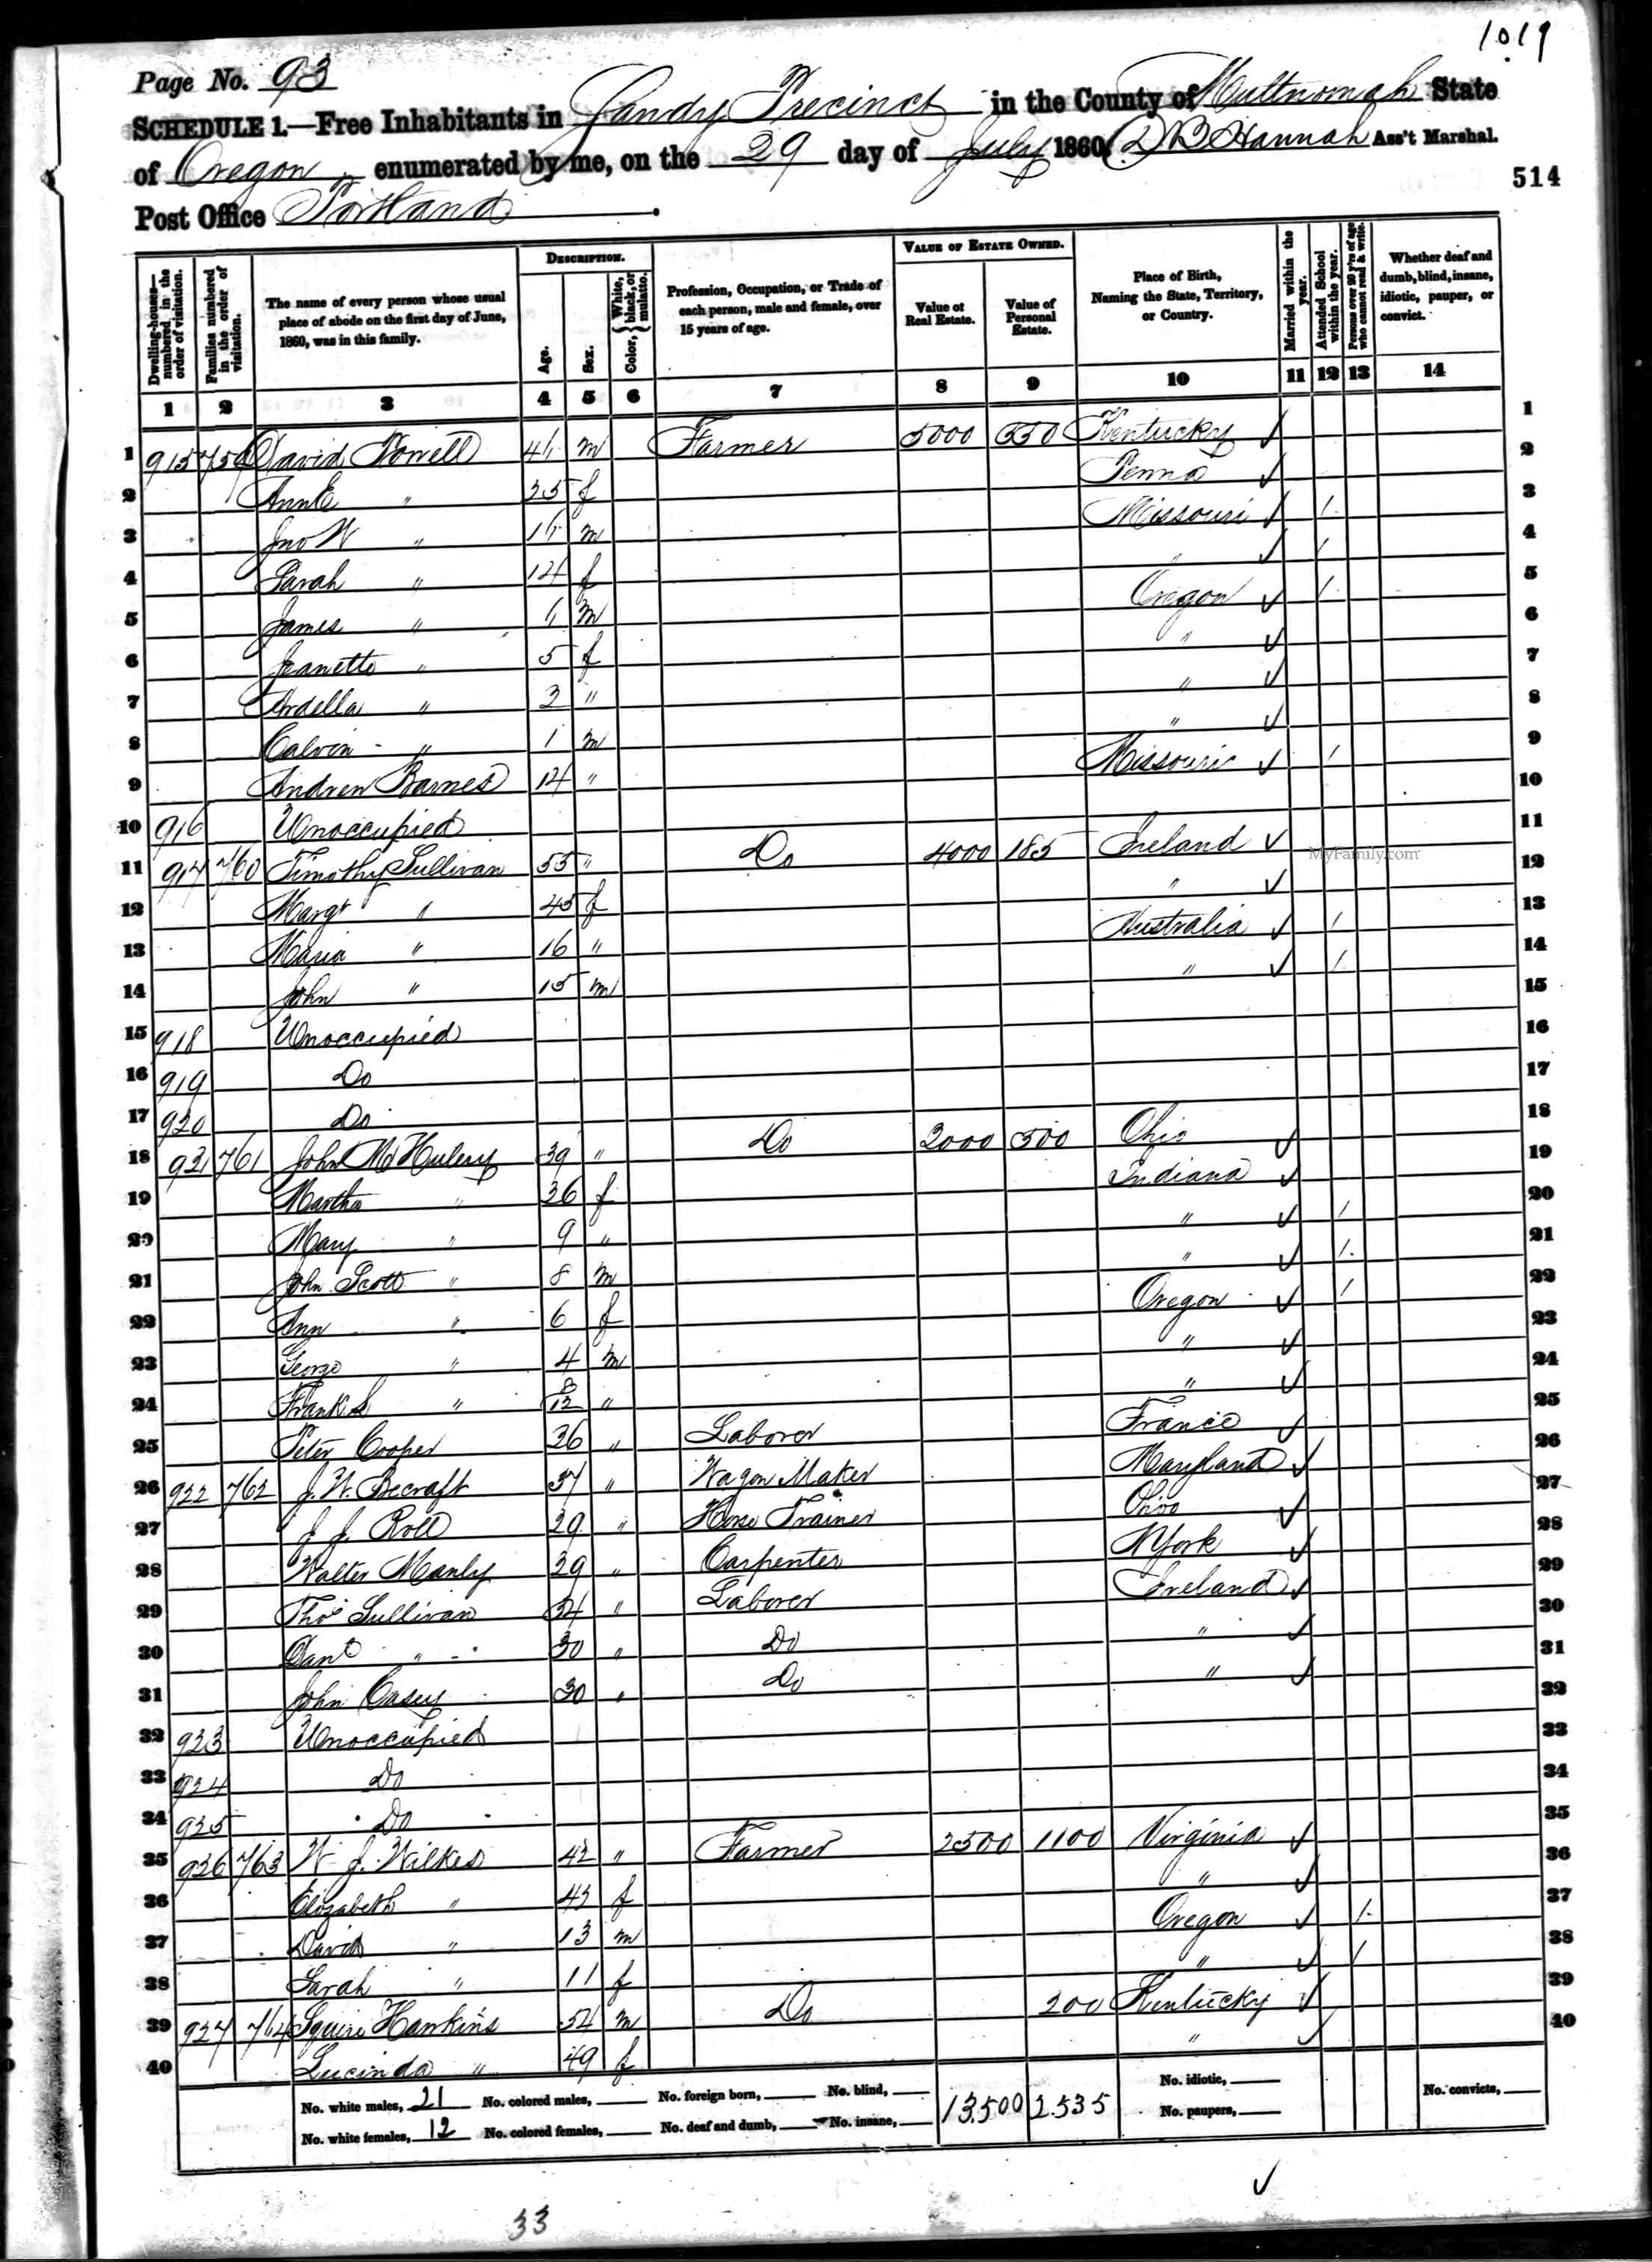 1019
Page No. 93
SCHEDULE 1.—Free Inhabitants in Sandy Precinct in the County of Multnomah State
of Oregon, enumerated by me, on the 29 day of July 1860. D B Hannah Ass't Marshal.
514
Post Office Portland.
Dwelling-houses—numbered in the order of visitation.
Families numbered in the order of visitation.
The name of every person whose usual place of abode on the first day of June, 1860, was in this family.
DESCRIPTION.
Age.
Sex.
Color, { White, black, or mulatto.
Profession, Occupation, or Trade of each person, male and female, over 15 years of age.
VALUE OF ESTATE OWNED.
Value of Real Estate.
Value of Personal Estate.
Place of Birth, Naming the State, Territory, or Country.
Married within the year.
Attended School within the year.
Persons over 20 y'rs of age who cannot read & write.
Whether deaf and dumb, blind, insane, idiotic, pauper, or convict.
1 2 3 4 5 6 7 8 9 10 11 12 13 14
1 915 759 David Powell m Farmer 5000 550 Kentucky ✓ 1
2 Ann E " 35 f Penna ✓ 2
3 Jno W " m Missouri ✓ 1 3
4 Sarah " 14 f " ✓ 1 4
5 James " m Oregon ✓ 1 5
6 Jeanette " 5 f " ✓ 6
7 Ardella " 3 " " ✓ 7
8 Calvin " 1 m " ✓ 8
9 Andrew Barnes 14 " Missouri ✓ 1 9
10 916 Unoccupied 10
11 917 760 Timothy Sullivan 55 " Do 4000 185 Ireland ✓ 11
MyFamily.com
12 Margt " 45 f " ✓ 12
13 Maria " 16 " Australia ✓ 1 13
14 John " 15 m " ✓ 1 14
15 918 Unoccupied 15
16 919 Do 16
17 920 Do 17
18 921 761 John 39 " Do 2000 500 Ohio ✓ 18
19 Martha " 36 f Indiana ✓ 19
20 Mary " 9 " " ✓ 1 20
21 John Scott " 8 m " ✓ 1 21
22 Ann " 6 f Oregon ✓ 1 22
23 George " 4 m " ✓ 23
24 Frank L " 8/12 " " ✓ 24
25 Peter Cooper 26 " Laborer France ✓ 25
26 922 762 J. W. Becraft 37 " Wagon Maker Maryland ✓ 26
27 J. J. Roll 29 " Horse Trainer Ohio ✓ 27
28 Walter Manly 29 " Carpenter N York ✓ 28
29 Thos Sullivan 34 " Laborer Ireland ✓ 29
30 Danl " 30 " Do " ✓ 30
31 John Casey 30 " Do " ✓ 31
32 923 Unoccupied 32
33 924 Do 33
34 925 Do 34
35 926 763 W. J. Wilkes 42 " Farmer 2500 1100 Virginia ✓ 35
36 Elizabeth " 43 f " ✓ 36
37 David " 13 m Oregon ✓ 1 37
38 Sarah " 11 f " ✓ 1 38
39 927 764 Squire Hankins 54 m Do 200 Kentucky ✓ 39
40 Lucinda " 49 f " ✓ 40
No. white males, 21 No. colored males, No. foreign born, No. blind, No. idiotic, No. convicts,
No. white females, 12 No. colored females, No. deaf and dumb, No. insane, 13500 2535 No. paupers,
✓
33